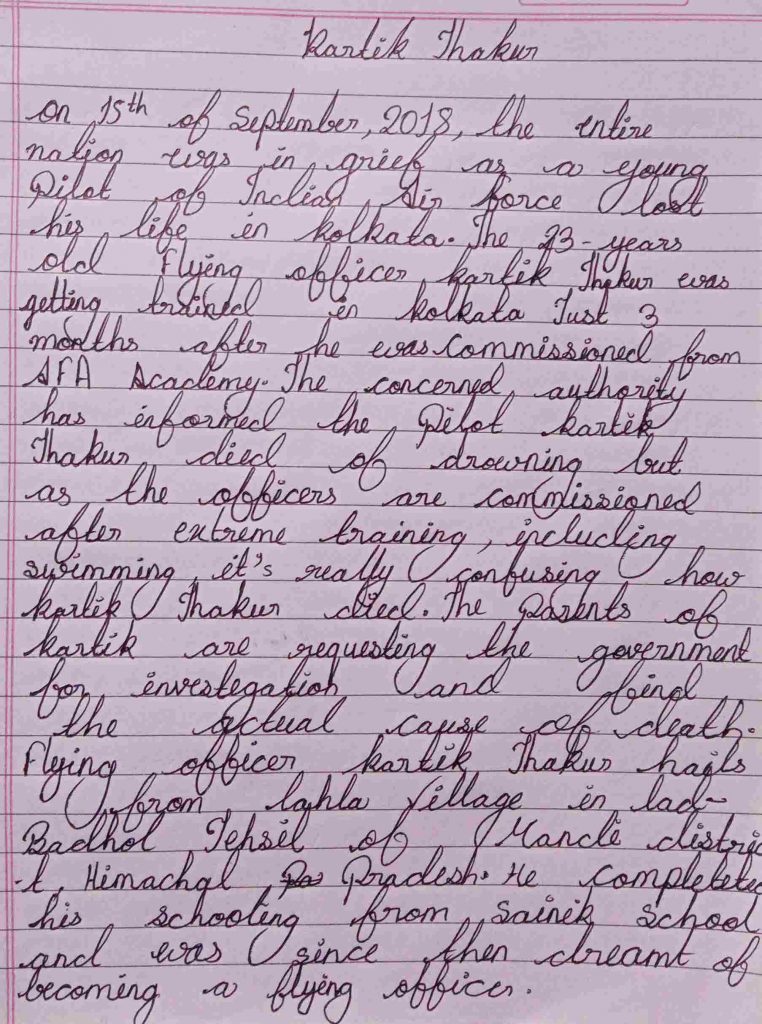 Kartik Thakur
on 15th of September, 2018, the entire
nation was in grief as a young
Pilot of Indian Air force lost
his life in kolkata. The 23-years
old Flying officer kartik Thakur was
getting trained in kolkata Just 3
months after he was commissioned from
AFA Academy. The concerned authority
has informed the Pilot kartik
Thakur died of drowning but
as the officers are commissioned
after extreme training, including
swimming, it's really confusing how
kartik Thakur died. The Parents of
kartik are requesting the government
for investegation and find
the actual cause of death.
Flying officer kartik Thakur hails
from lahla Village in lad-
Badhol Tehsil of Mandi distric
-t, Himachal Pradesh. He completed
his schooling from Sainik School
and was since then dreamt of
becoming a flying officer.